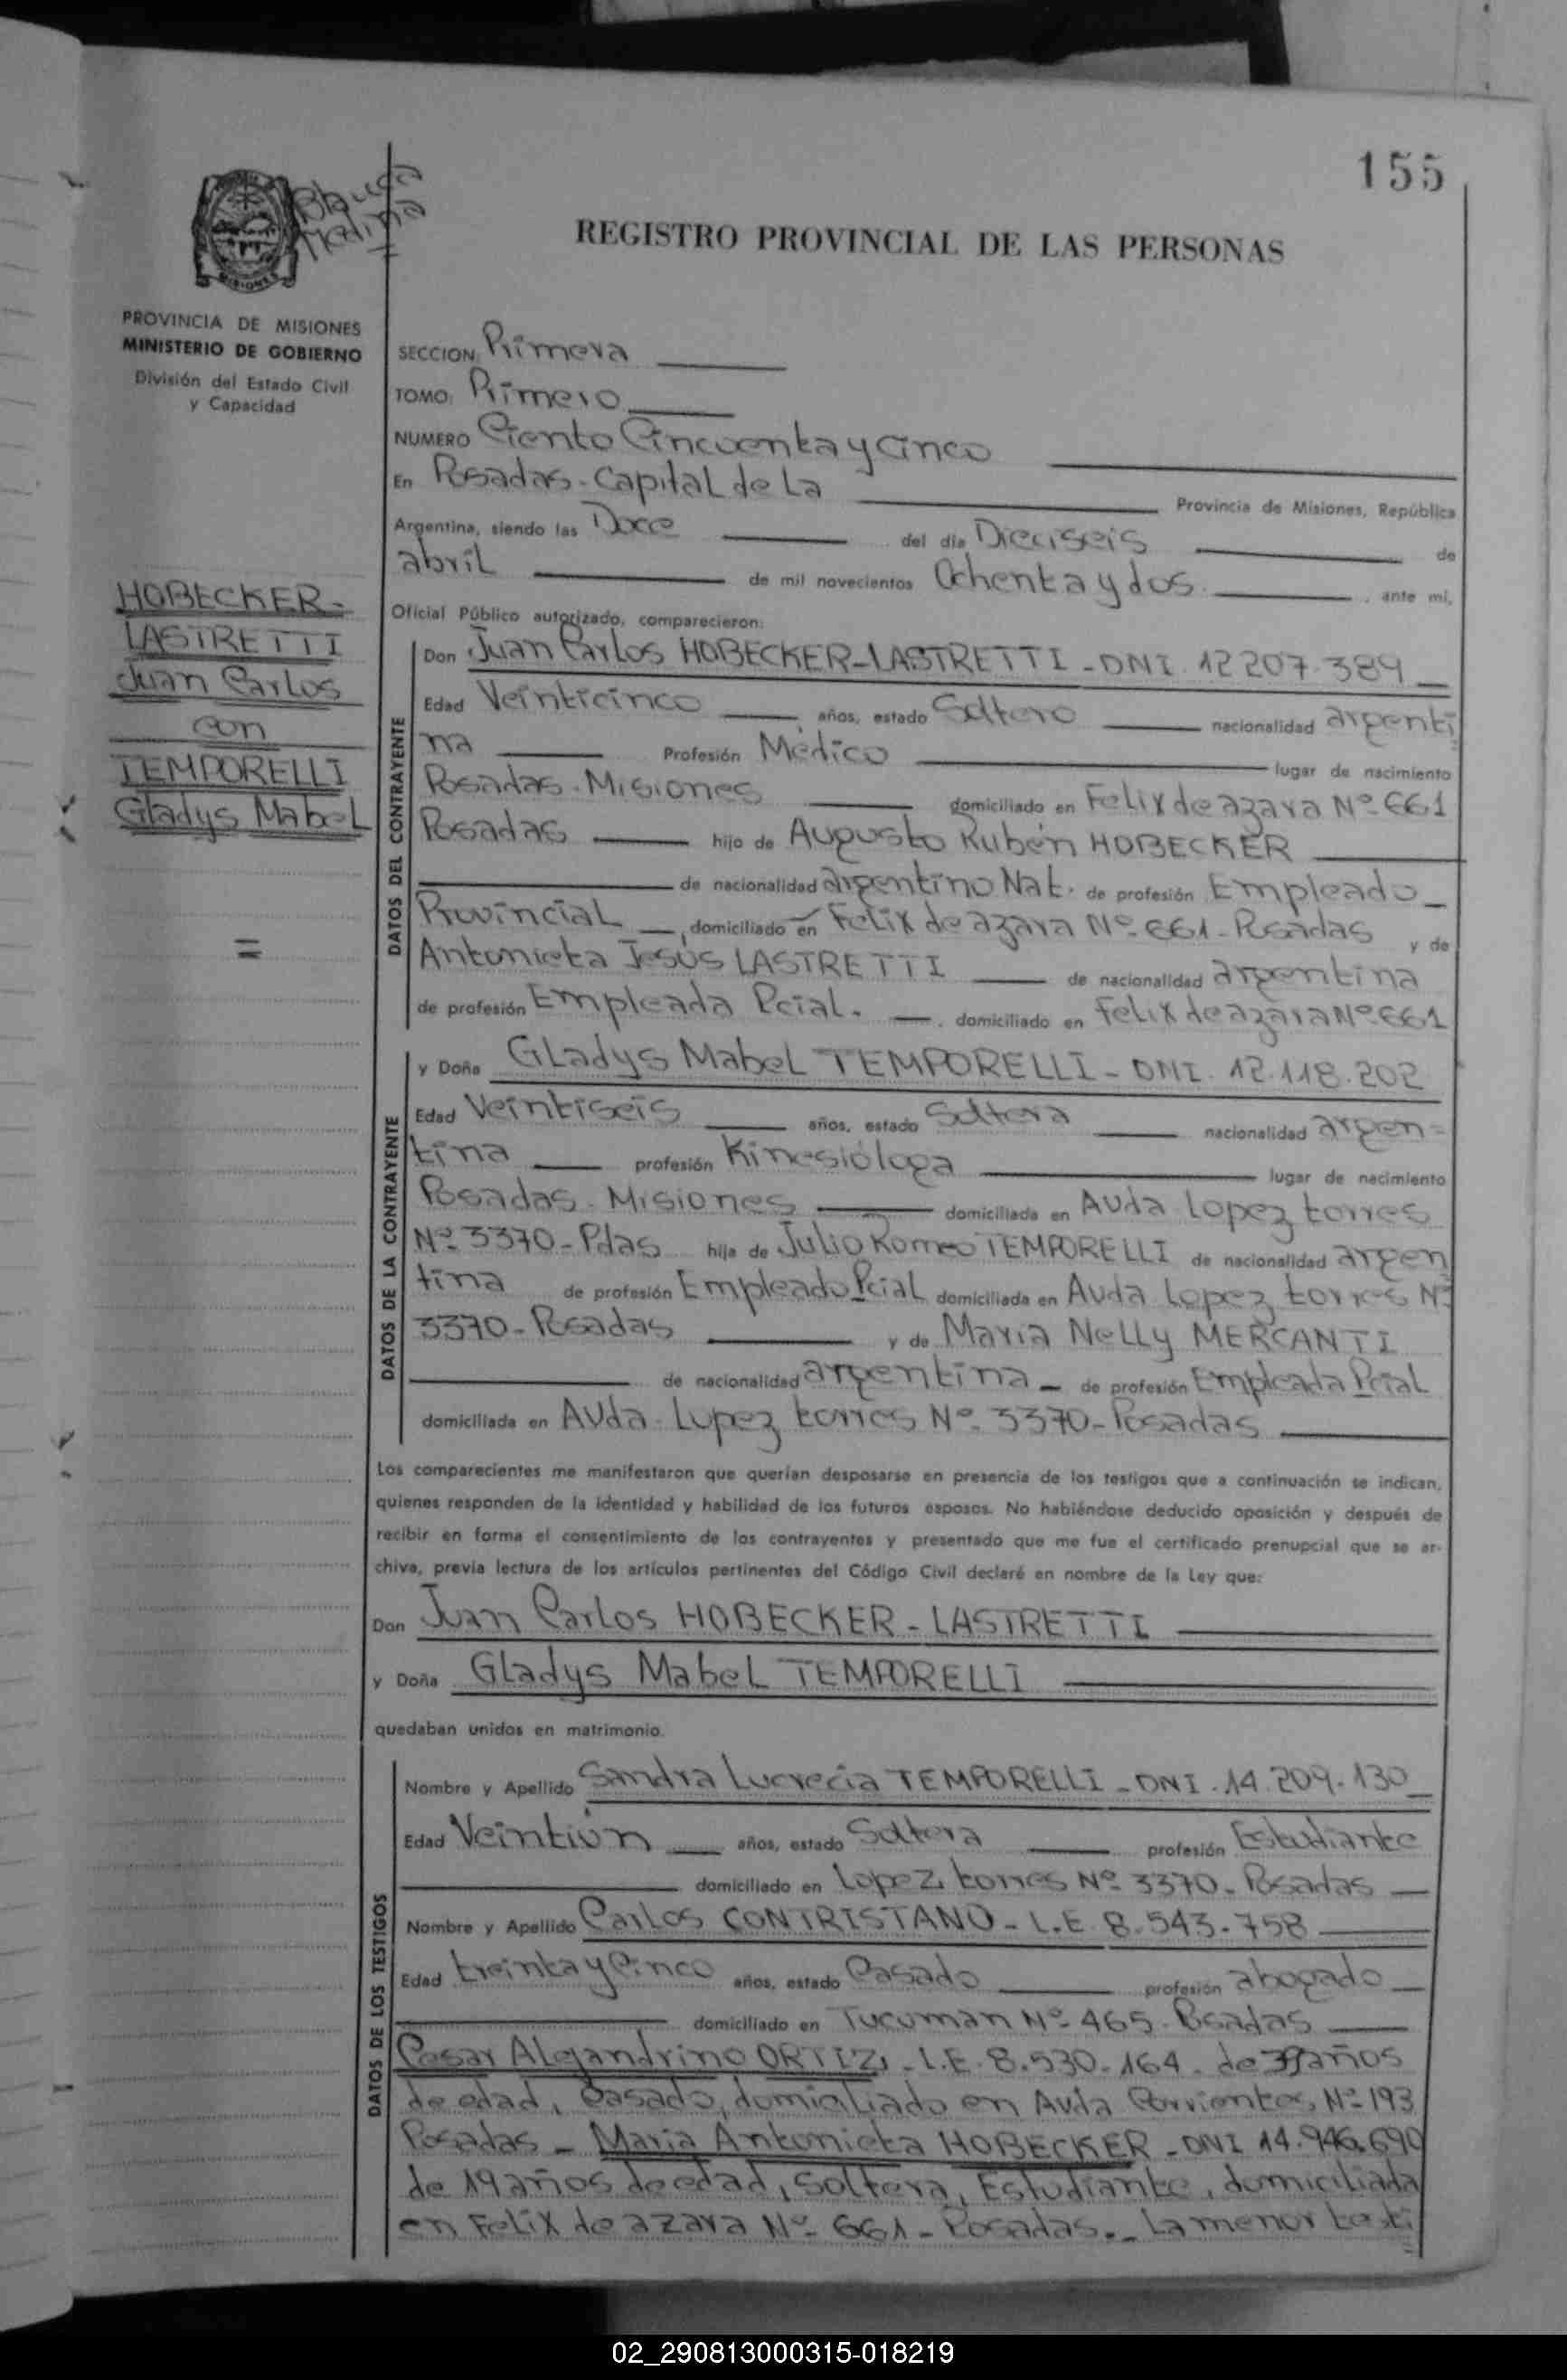 155
Blanca
Medina
MISIONES
REGISTRO PROVINCIAL DE LAS PERSONAS
PROVINCIA DE MISIONES
MINISTERIO DE GOBIERNO
División del Estado Civil
y Capacidad
HOBECKER-
LASTRETTI
Juan Carlos
con
TEMPORELLI
Gladys Mabel
=
SECCION: Primera
TOMO: Primero
NUMERO Ciento Cincuenta y Cinco
En Posadas-Capital de La Provincia de Misiones, República
Argentina, siendo las Doce del día Dieciseis de
abril de mil novecientos Ochenta y dos. , ante mi,
Oficial Público autorizado, comparecieron:
DATOS DEL CONTRAYENTE
Don Juan Carlos HOBECKER-LASTRETTI-DNI 12 207.389
Edad Veinticinco años, estado Soltero nacionalidad argenti
na Profesión Médico lugar de nacimiento
Posadas-Misiones domiciliado en Felix de azara Nº-661
Posadas hijo de Augusto Rubén HOBECKER
de nacionalidad argentino Nat. de profesión Empleado
Provincial , domiciliado en Felix de azara Nº-661-Posadas y de
Antonieta Jesús LASTRETTI de nacionalidad argentina
de profesión Empleada Pcial. , domiciliado en Felix de azara Nº661
DATOS DE LA CONTRAYENTE
y Doña Gladys Mabel TEMPORELLI-DNI. 12.118.202
Edad Veintiseis años, estado Soltera nacionalidad argen=
tina profesión Kinesióloga lugar de nacimiento
Posadas-Misiones domiciliada en Avda Lopez torres
Nº-3370-Pdas hija de Julio Romeo TEMPORELLI de nacionalidad argen
tina de profesión Empleado Pcial domiciliada en Avda Lopez torres Nº
3370-Posadas y de Maria Nelly MERCANTI
de nacionalidad argentina- de profesión Empleada Pcial
domiciliada en Avda-Lopez torres Nº-3370-Posadas
Los comparecientes me manifestaron que querían desposarse en presencia de los testigos que a continuación se indican,
quienes responden de la identidad y habilidad de los futuros esposos. No habiéndose deducido oposición y después de
recibir en forma el consentimiento de los contrayentes y presentado que me fue el certificado prenupcial que se ar-
chiva, previa lectura de los artículos pertinentes del Código Civil declaré en nombre de la Ley que:
Don Juan Carlos HOBECKER-LASTRETTI
y Doña Gladys Mabel TEMPORELLI
quedaban unidos en matrimonio.
DATOS DE LOS TESTIGOS
Nombre y Apellido Sandra Lucrecia TEMPORELLI-DNI.14.209.130
Edad Veintiún años, estado Soltera profesión Estudiante
domiciliado en Lopez torres Nº-3370-Posadas
Nombre y Apellido Carlos CONTRISTANO-L.E.8.543.758
Edad treinta y Cinco años, estado Casado profesión abogado
domiciliado en Tucuman Nº-465-Posadas
Cesar Alejandrino ORTIZ,-L.E.8.530.164. de años
de edad, Casado, domiciliado en Avda Corrientes, Nº-193
Posadas-Maria Antonieta HOBECKER-DNI 14.946.690
de 19 años de edad, soltera, Estudiante, domiciliada
en Felix de azara Nº-661-Posadas.-La menor testi
02_290813000315-018219